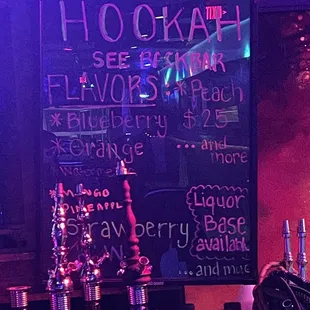 HOOKAH
SEE BACKBAR
FLAVORS: *Peach
*Blueberry $25
*Orange ... and
more
*MANGO
PINEAPPL
Strawberry
Liquor
Base
available
...and